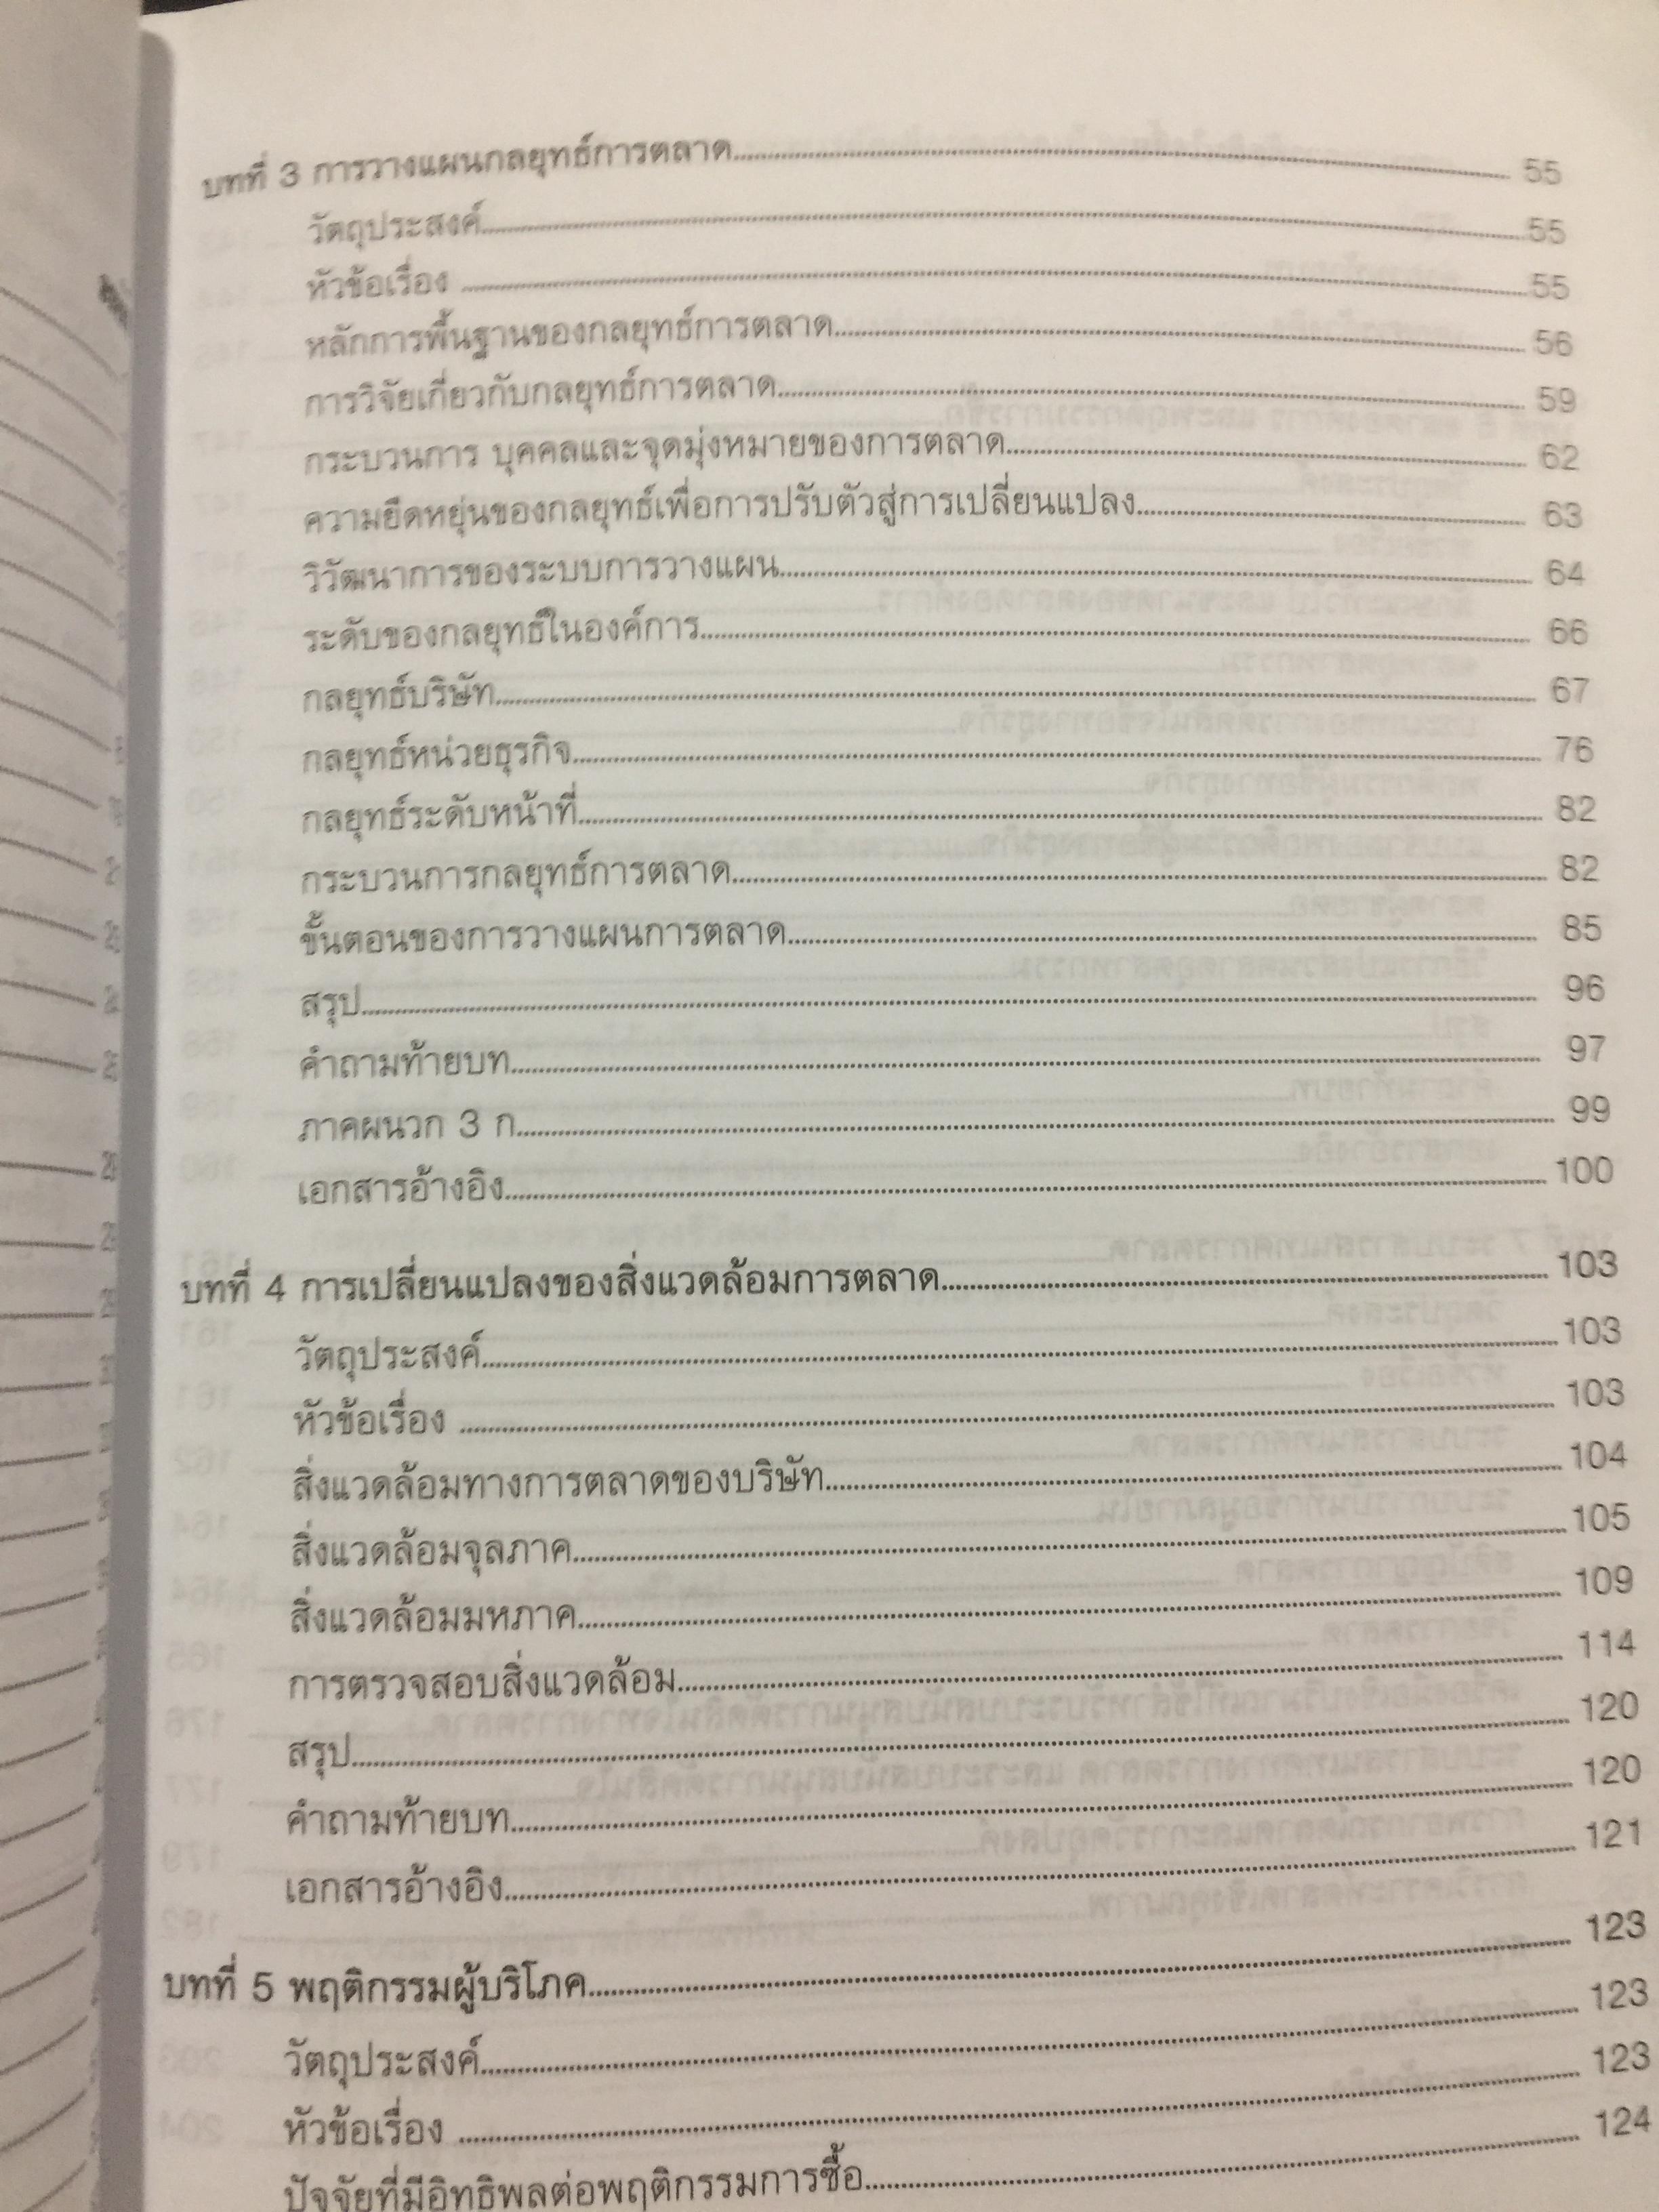 บทที่ 3 การวางแผนกลยุทธ์การตลาด 55
วัตถุประสงค์ 55
หัวข้อเรื่อง 55
หลักการพื้นฐานของกลยุทธ์การตลาด 56
การวิจัยเกี่ยวกับกลยุทธ์การตลาด 59
กระบวนการ บุคคลและจุดมุ่งหมายของการตลาด 62
ความยืดหยุ่นของกลยุทธ์เพื่อการปรับตัวสู่การเปลี่ยนแปลง 63
วิวัฒนาการของระบบการวางแผน 64
ระดับของกลยุทธ์ในองค์การ 66
กลยุทธ์บริษัท 67
กลยุทธ์หน่วยธุรกิจ 76
กลยุทธ์ระดับหน้าที่ 82
กระบวนการกลยุทธ์การตลาด 82
ขั้นตอนของการวางแผนการตลาด 85
สรุป 96
คำถามท้ายบท 97
ภาคผนวก 3 ก 99
เอกสารอ้างอิง 100
บทที่ 4 การเปลี่ยนแปลงของสิ่งแวดล้อมการตลาด 103
วัตถุประสงค์ 103
หัวข้อเรื่อง 103
สิ่งแวดล้อมทางการตลาดของบริษัท 104
สิ่งแวดล้อมจุลภาค 105
สิ่งแวดล้อมมหภาค 109
การตรวจสอบสิ่งแวดล้อม 114
สรุป 120
คำถามท้ายบท 120
เอกสารอ้างอิง 121
บทที่ 5 พฤติกรรมผู้บริโภค 123
วัตถุประสงค์ 123
หัวข้อเรื่อง 123
ปัจจัยที่มีอิทธิพลต่อพฤติกรรมการซื้อ 124